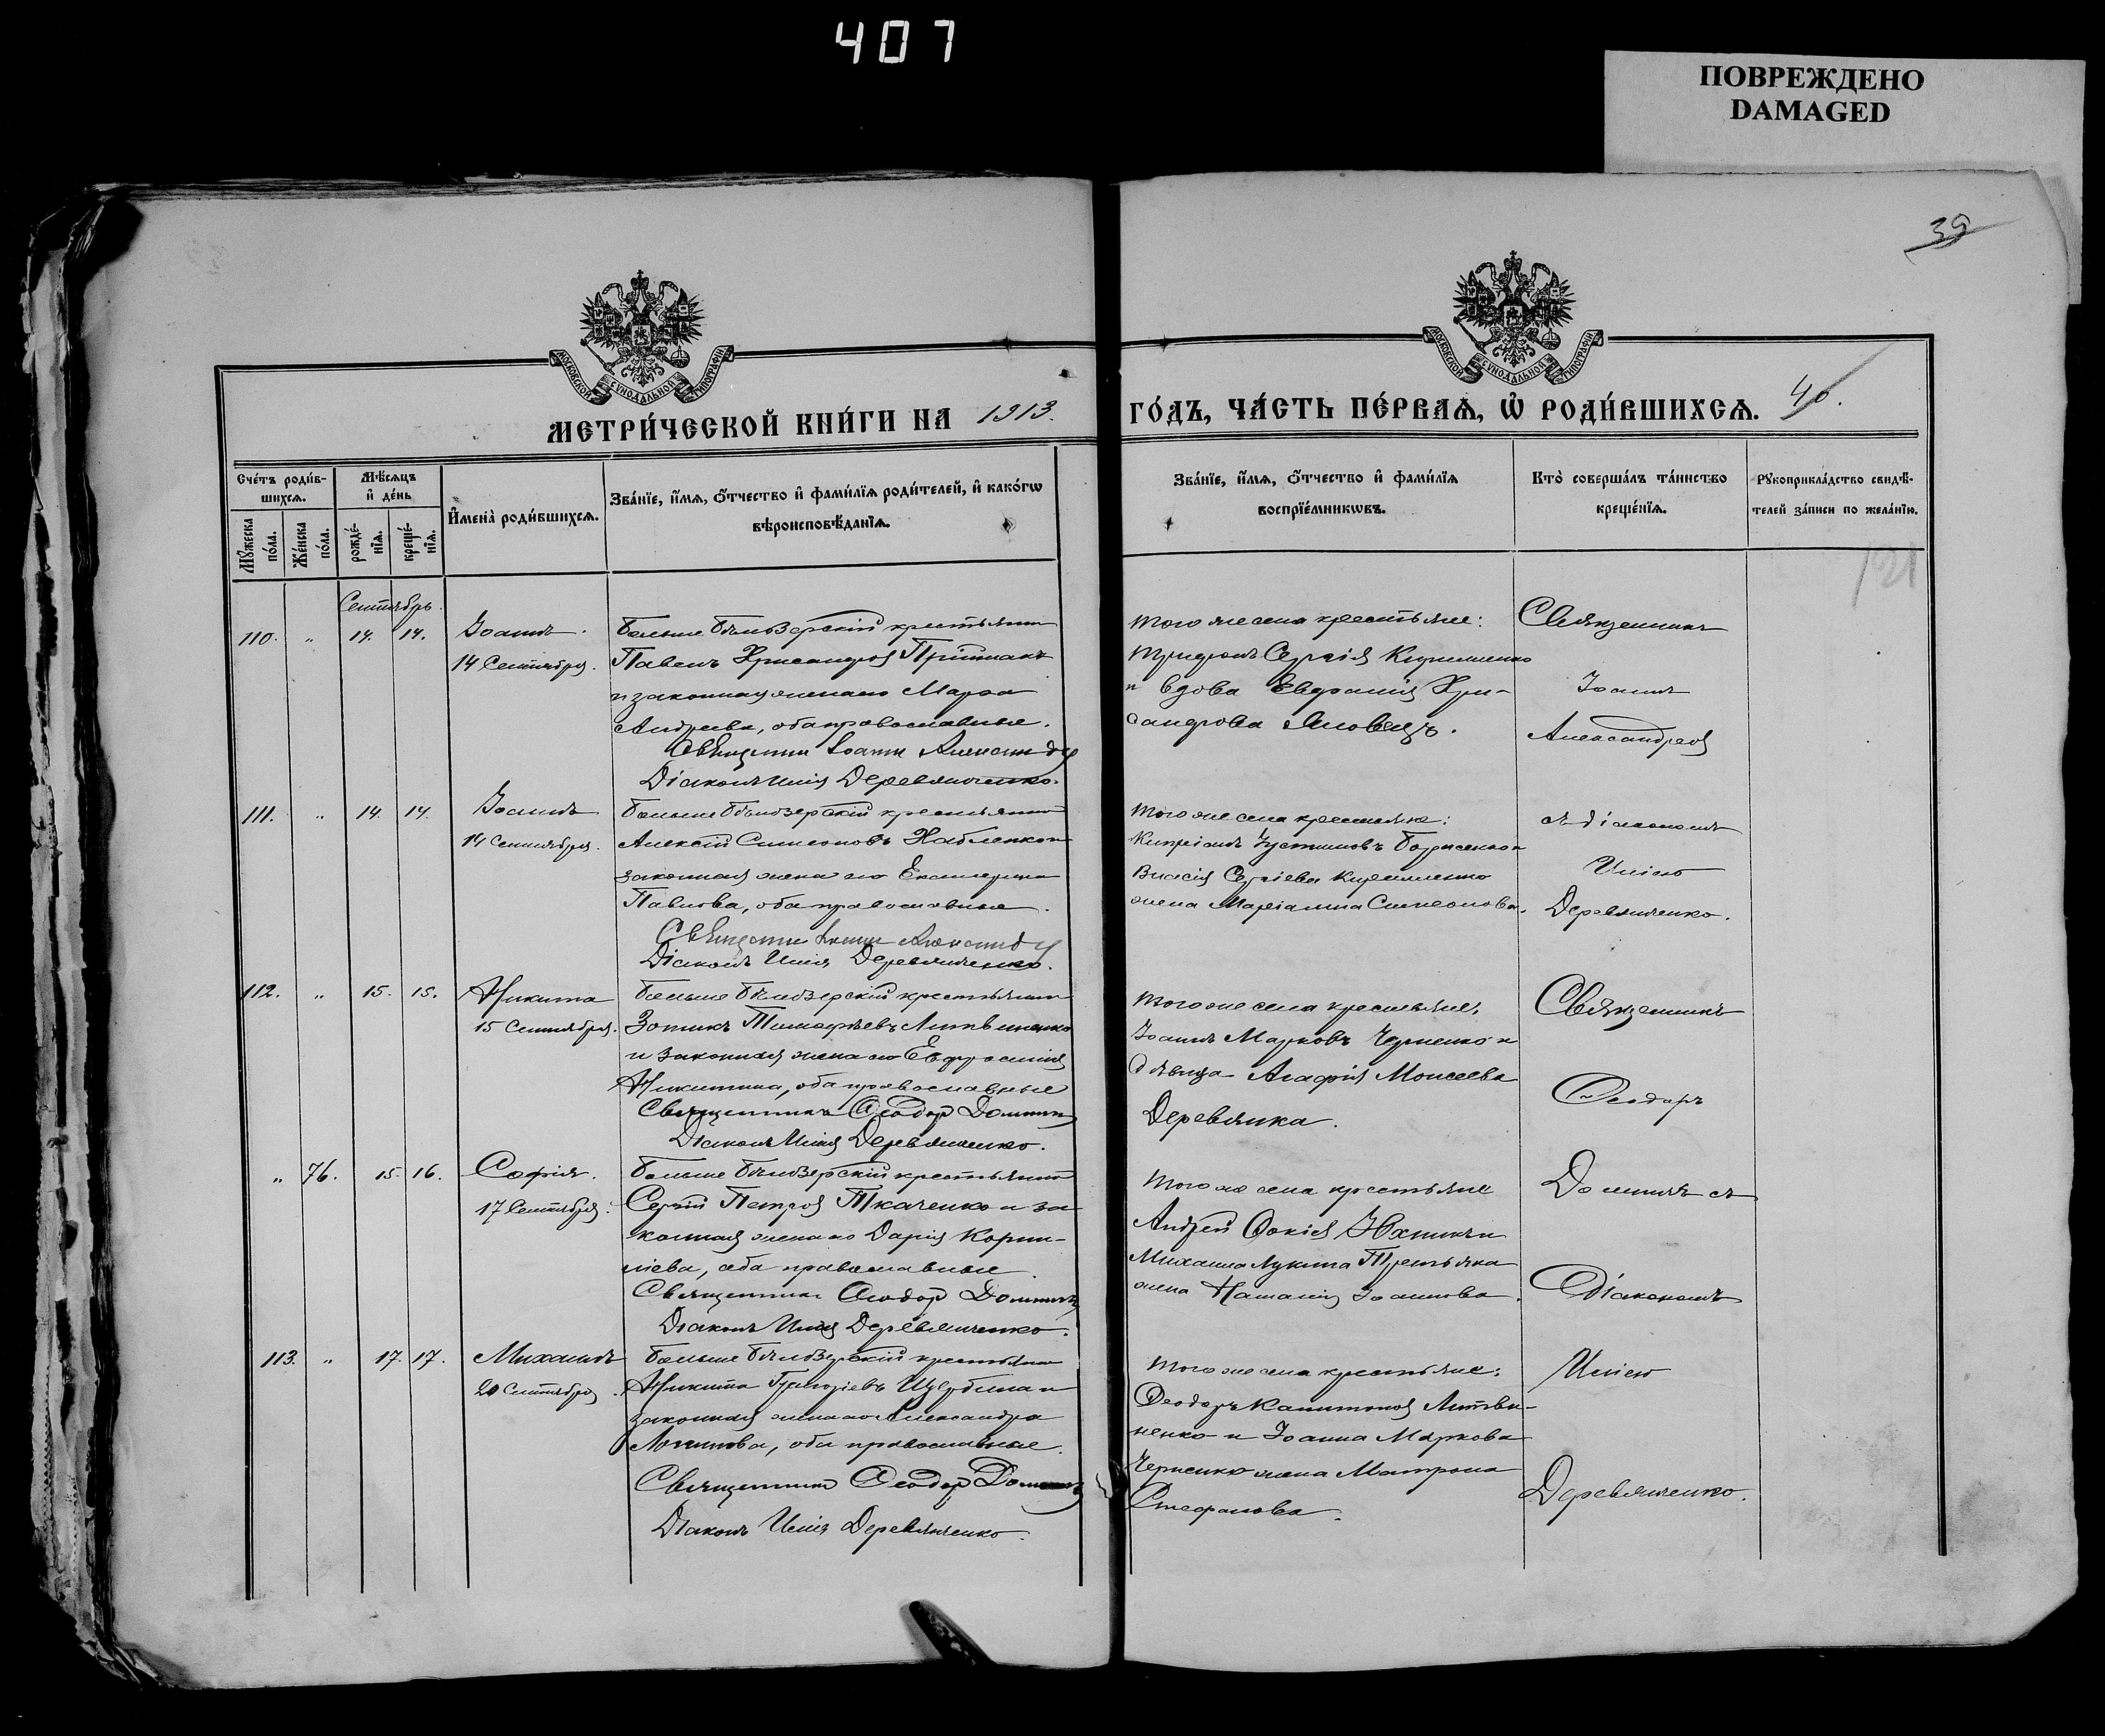 407
ПОВРЕЖДЕНО
DAMAGED
39
МОСКОВСКОЙ СѴНОДАЛЬНОЙ ТИПОГРАФІИ
МОСКОВСКОЙ СѴНОДАЛЬНОЙ ТИПОГРАФІИ
МЕТРИ́ЧЕСКОЙ КНИ́ГИ НА 1913.
ГО́ДЪ, ЧА́СТЬ ПЕ́РВАѦ, Ѡ҆ РОДИ́ВШИХСѦ. 40.
Сче́тъ роди́в-
шихсѧ.
Мꙋ́жеска по́ла.
Же́нска по́ла.
Мѣ́сѧцъ
и҆ де́нь
рожде́-
нїѧ.
креще́-
нїѧ.
И҆мена̀ роди́вшихсѧ.
Зва́нїе, и҆́мѧ, ѻ҆́тчество и҆ фами́лїѧ роди́телей, и҆ како́гѡ
вѣроисповѣ́данїѧ.
Зва́нїе, и҆́мѧ, ѻ҆́тчество и҆ фами́лїѧ
воспрїе́мникѡвъ.
Кто̀ соверша́лъ та́инство
креще́нїѧ.
Рꙋкоприкла́дство свидѣ́-
телей за́писи по жела́нїю.
121
Сентябрь.
110. „ 14. 14. Іоаннъ.
14 Сентября.
Больше Бѣлозерскій крестьянин
Павелъ Хрисанфов Пришлакъ
и законная жена его Марфа
Андреева, оба православные.
Священник Іоанн Александров
Діаконъ Илія Деревянченко.
того же села крестьяне:
Трифонъ Сергіев Кириленко
и вдова Евфросинія Хри-
санфова Яловецъ.
Священникъ
Іоаннъ
Александров
111. „ 14. 14. Іоаннъ
14 Сентября.
Больше Бѣлозерскій крестьянин
Алексій Симеоновъ Набленко и
законная жена его Екатерина
Павлова, оба православные.
Священник Іоанн Александров
Діаконъ Илія Деревянченко.
того же села крестьяне:
Кипріанъ Іустиновъ Борисенко и
Власія Сергіева Кириленко
жена Маріанна Симеонова.
съ діакономъ
Иліею
Деревянченко.
112. „ 15. 15. Никита
15 Сентября.
Больше Бѣлозерскій крестьянин
Зотикъ Тимофѣевъ Литвиненко
и законная жена его Евфросинія
Никитина, оба православные
Священникъ Ѳеодор
Діаконъ Илія Деревянченко.
того же села крестьяне:
Іоаннъ Марковъ Черненко и
дѣвица Агафія Моисеева
Деревянка.
Священникъ
Ѳеодоръ
„ 76. 15. 16. Софія.
17 Сентября.
Больше Бѣлозерскій крестьянин
Сергій Петров Ткаченко и за-
конная жена его Дарія Корни-
ліева, оба православные.
Священник Ѳеодор
Діаконъ Илія Деревянченко.
того же села крестьяне
Андрей Фокіев Юхникъ и
Михаила Лукина Третьяка
жена Наталія Іоаннова.
съ
Діакономъ
113. „ 17. 17. Михаилъ
20 Сентября.
Больше Бѣлозерскій крестьянин
Никита Григоріевъ Щербина и
законная жена его Александра
Логинова, оба православные.
Священник Ѳеодор
Діаконъ Илія Деревянченко.
того же села крестьяне:
Ѳеодоръ Капитонов Литви-
ненко и Іоанна Маркова
Черненко жена Матрона
Стефанова.
Иліею
Деревянченко.